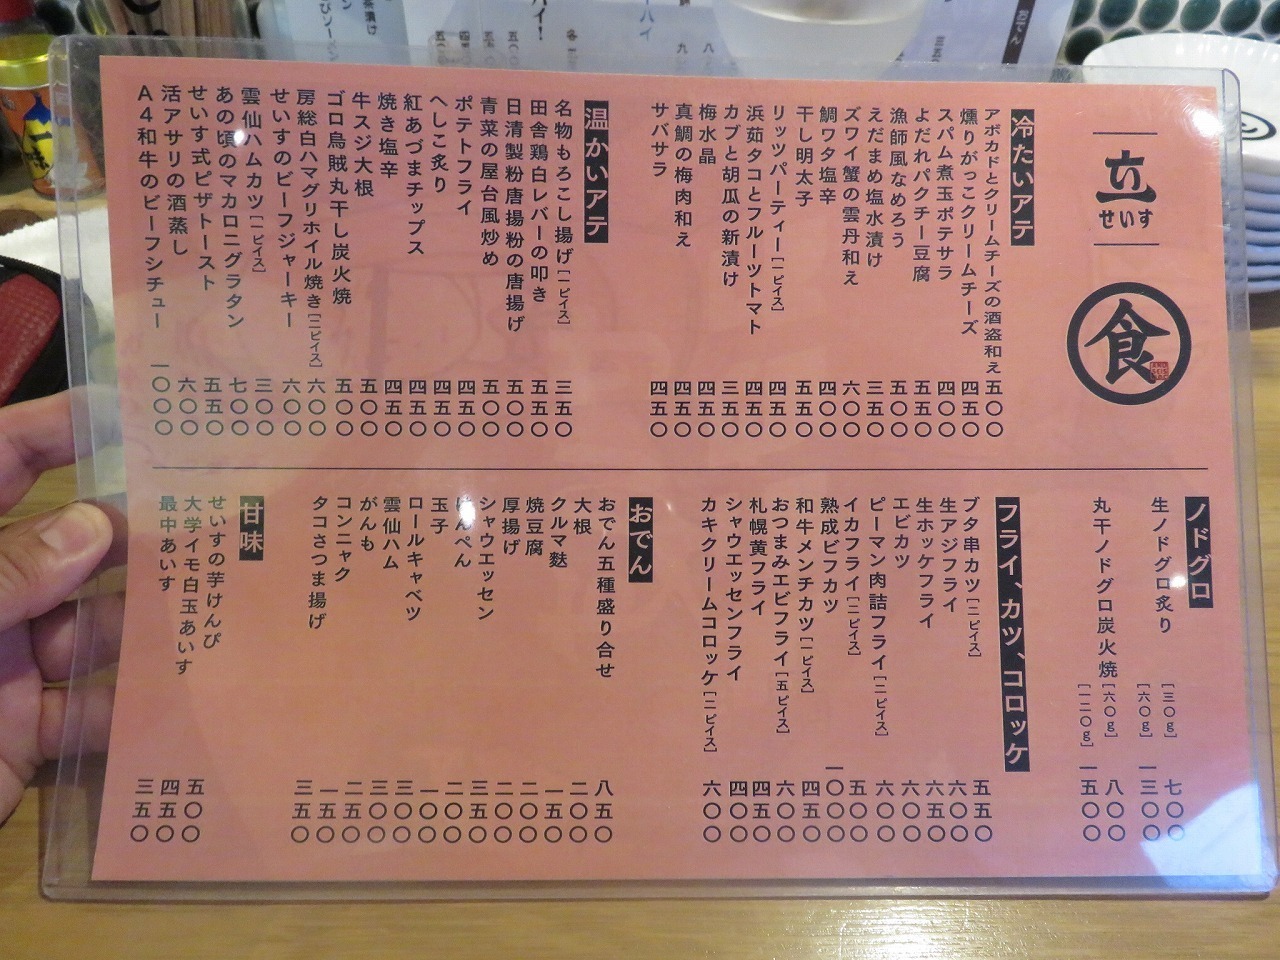 立
せいす
食
冷たいアテ
アボカドとクリームチーズの酒盗和え 五〇〇
燻りがっこクリームチーズ 四五〇
スパム煮玉ポテサラ 四〇〇
よだれパクチー豆腐 五五〇
漁師風なめろう 五〇〇
えだまめ塩水漬け 三五〇
ズワイ蟹の雲丹和え 六〇〇
鯛ワタ塩辛 四〇〇
干し明太子 五五〇
リッツパーティー[一ピイス] 四五〇
浜茹タコとフルーツトマト 四五〇
カブと胡瓜の新漬け 三五〇
梅水晶 四五〇
真鯛の梅肉和え 四五〇
サバサラ 四五〇
温かいアテ
名物もろこし揚げ[一ピイス] 三五〇
田舎鶏白レバーの叩き 五五〇
日清製粉唐揚粉の唐揚げ 五〇〇
青菜の屋台風炒め 五〇〇
ポテトフライ 四五〇
へしこ炙り 四五〇
紅あづまチップス 四五〇
焼き塩辛 四五〇
牛スジ大根 五〇〇
ゴロ烏賊丸干し炭火焼 五〇〇
房総白ハマグリホイル焼き[二ピイス] 六〇〇
せいすのビーフジャーキー 六〇〇
雲仙ハムカツ[一ピイス] 三〇〇
あの頃のマカロニグラタン 七〇〇
せいす式ピザトースト 五五〇
活アサリの酒蒸し 六〇〇
A4和牛のビーフシチュー 一〇〇〇
ノドグロ
生ノドグロ炙り [三〇g] 七〇〇
[六〇g] 一三〇〇
丸干ノドグロ炭火焼 [六〇g] 八〇〇
[一二〇g] 一五〇〇
フライ、カツ、コロッケ
ブタ串カツ[二ピイス] 五五〇
生アジフライ 六〇〇
生ホッケフライ 六五〇
エビカツ 六〇〇
ピーマン肉詰フライ[二ピイス] 六〇〇
イカフライ[二ピイス] 五〇〇
熟成ビフカツ 一〇〇〇
和牛メンチカツ[一ピイス] 四五〇
おつまみエビフライ[五ピイス] 六〇〇
札幌黄フライ 四五〇
シャウエッセンフライ 四〇〇
カキクリームコロッケ[二ピイス] 六〇〇
おでん
おでん五種盛り合せ 八五〇
大根 二〇〇
クルマ麩 一五〇
焼豆腐 二〇〇
厚揚げ 二〇〇
シャウエッセン 三五〇
はんぺん 二〇〇
玉子 一〇〇
ロールキャベツ 三〇〇
雲仙ハム 三〇〇
がんも 二五〇
コンニャク 一五〇
タコさつま揚げ 三五〇
甘味
せいすの芋けんぴ 五〇〇
大学イモ白玉あいす 四五〇
最中あいす 三五〇